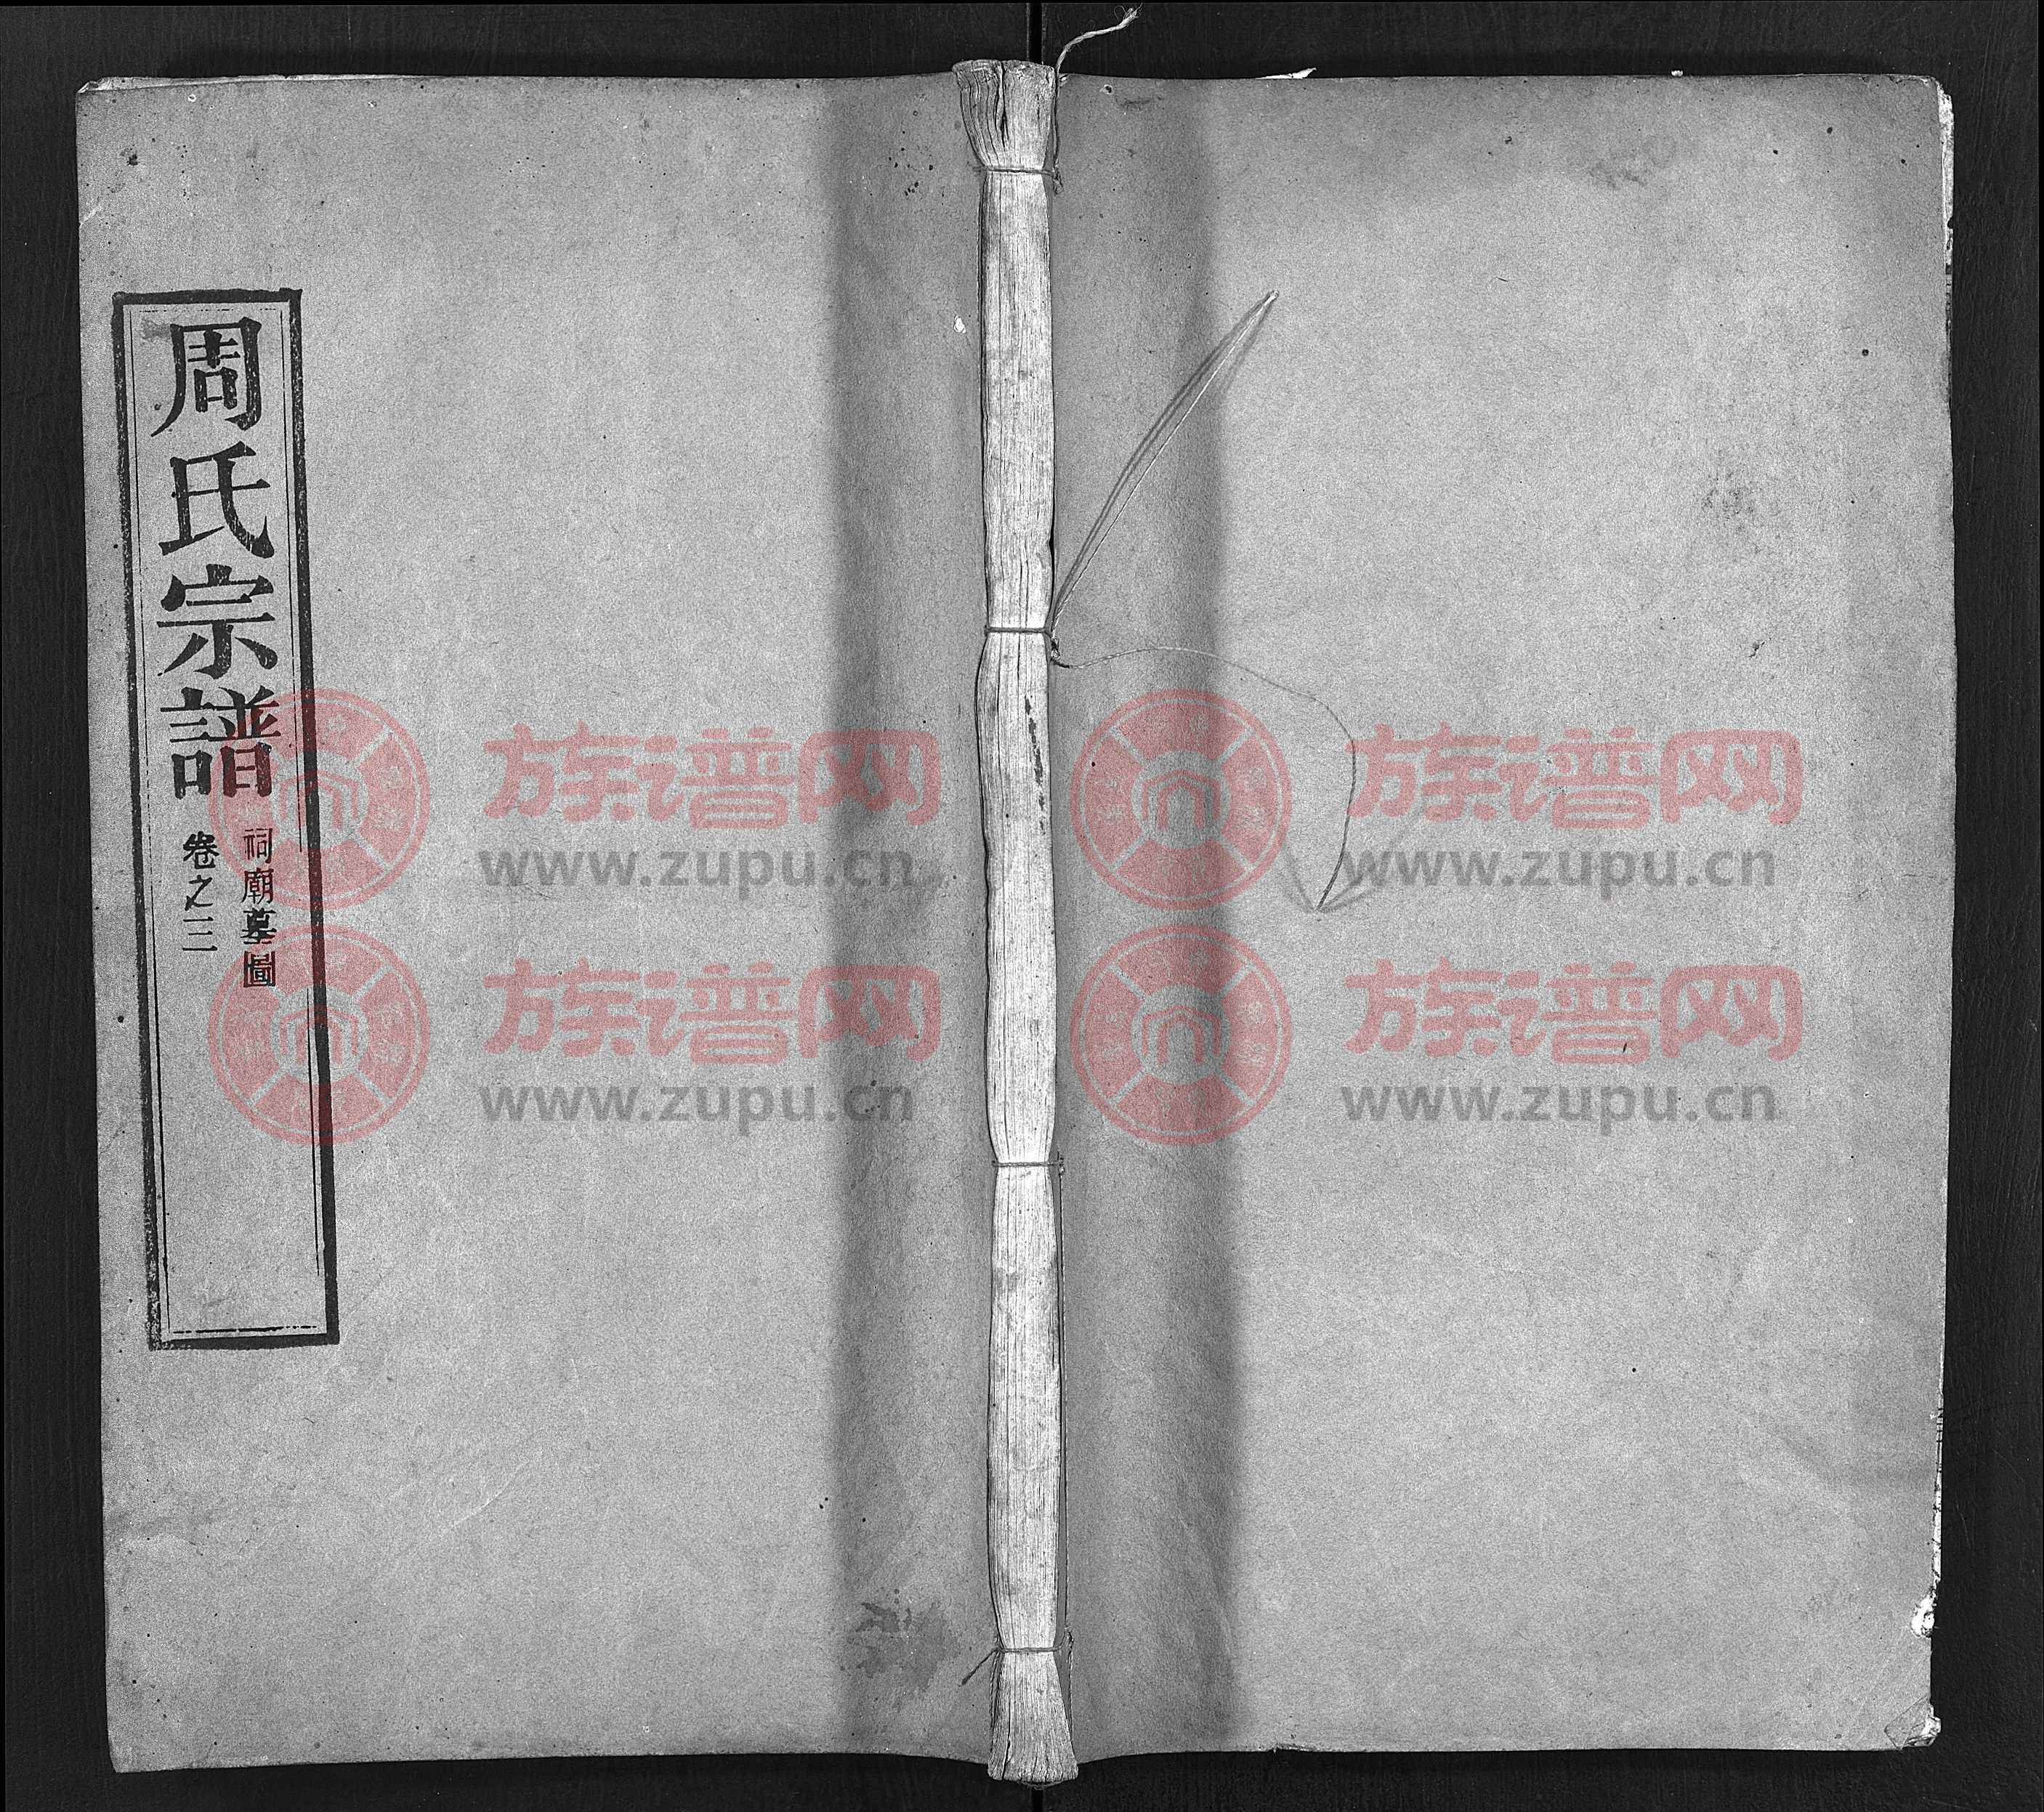 周氏宗譜
祠廟墓圖
卷之三
族谱网
www.zupu.cn
族谱网
www.zupu.cn
族谱网
www.zupu.cn
族谱网
www.zupu.cn